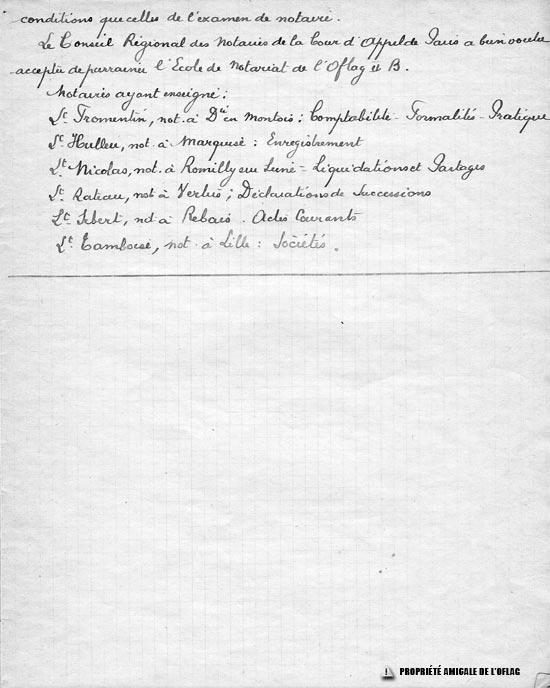 conditions que celles de l'examen de notaire.
Le Conseil Régional des Notaires de la Cour d'Appel de Paris a bien voulu
accepter de parrainer l'Ecole de Notariat de l'Oflag II B.
Notaires ayant enseigné :
Lt Fromentin, not. à en Montois : Comptabilité - Formalités - Pratique
Lt Hulleu, not. à Marquise : Enregistrement
Lt Nicolas, not. à Romilly sur Seine - Liquidations et Partages
Lt Rateau, not à Vertus ; Déclarations de Successions
Lt, not à Rebais. Actes Courants
Lt Tamboise, not. à Lille : Sociétés.
PROPRIÉTÉ AMICALE DE L'OFLAG